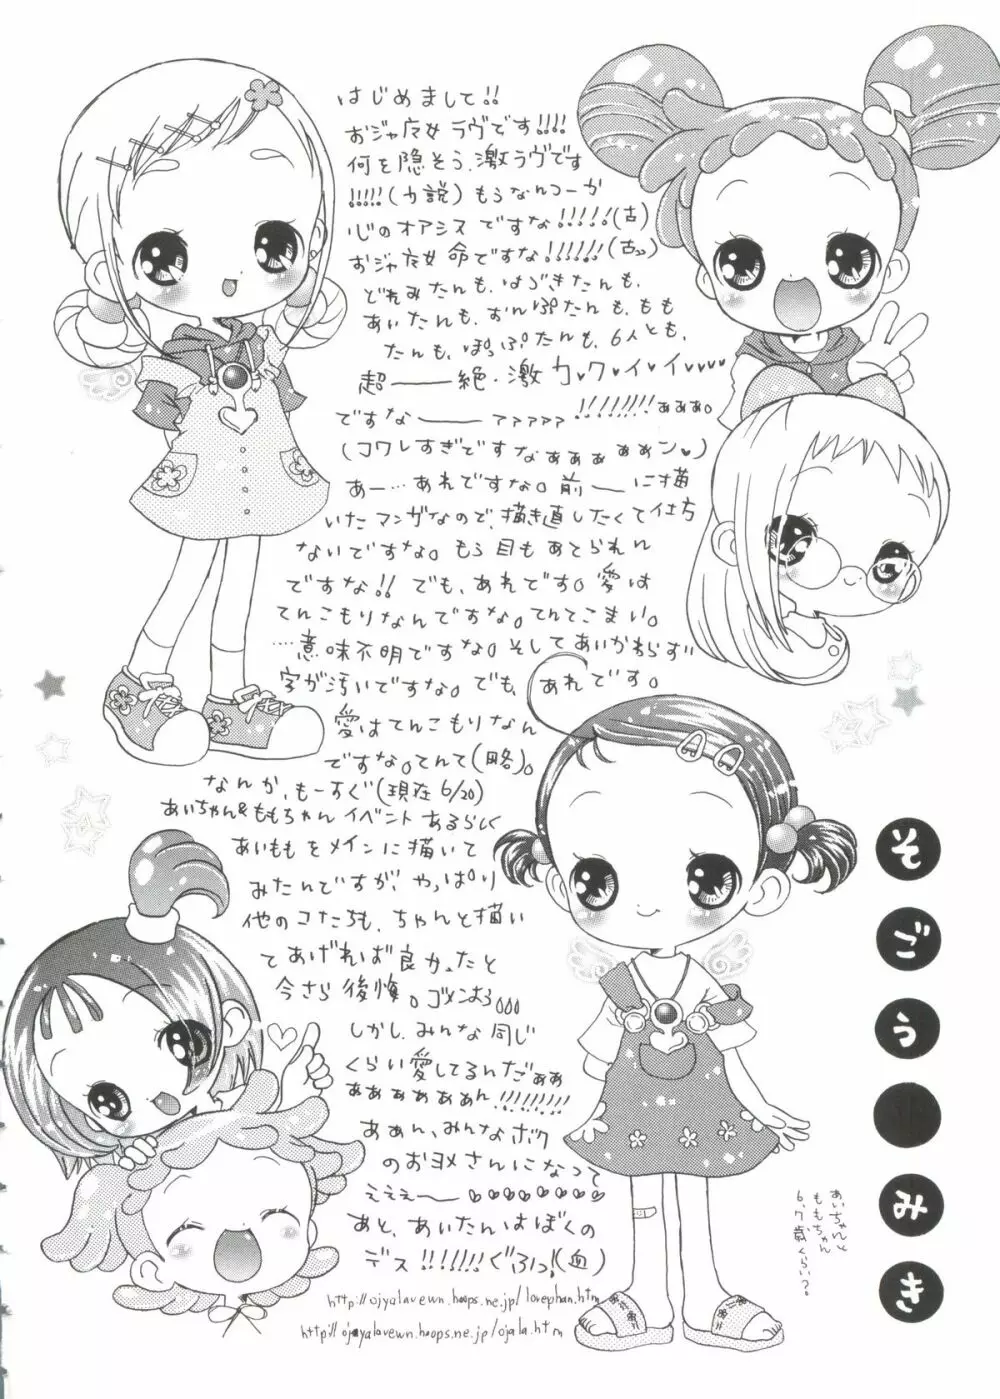 はじめまして!!
おジャ魔女ラヴです!!!!
何を隠そう、激ラヴです
!!!!!(力説)もうなんつーか
心のオアシスですな!!!!!!(古)
おジャ魔女命ですな!!!!!!(古)
どれみたんも、はづきたんも、
あいたんも、おんぷたんも、もも
たんも、ぽっぷたんも、6人とも、
超──絶・激カ♥ワ♥イ♥イ♥♥♥♥♥
ですな──ァァァァァ!!!!!!!!ぁぁぁ。
(コワレすぎですなぁぁぁぁぁン♥)
あー…あれですな。前──に描
いたマンガなので、描き直したくて仕方
ないですな。もう目もあてられん
ですな!!でも、あれです。愛は
てんこもりなんですな。てんてこまい。
…意味不明ですな。そしてあいかわらず
字が汚いですな。でも、あれです。
愛はてんこもりなん
ですな。てんて(略)。
なんか、もーすぐ(現在6/20)
あいちゃん&ももちゃんイベントあるらしく
あいももをメインに描いて
みたんですが、やっぱり
他のコたちも、ちゃんと描い
てあげれば良かったと
今さら後悔。ゴメンよう。。。
しかし、みんな同じ
くらい愛してるんだぁぁ
ぁぁぁぁぁぁぁん!!!!!!!!
あぁん、みんなボク
のおヨメさんになって
ぇぇぇー♥♥♥♥♥♥♥♥
あと、あいたんはぼくの
デス!!!!!!ぐふっ!(血)
http://ojyalavewn.hoops.ne.jp/lovephan.htm
http://ojayalovewn.hoops.ne.jp/ojala.htm
そごう
みき
あいちゃんと
ももちゃん
6、7歳くらい?。